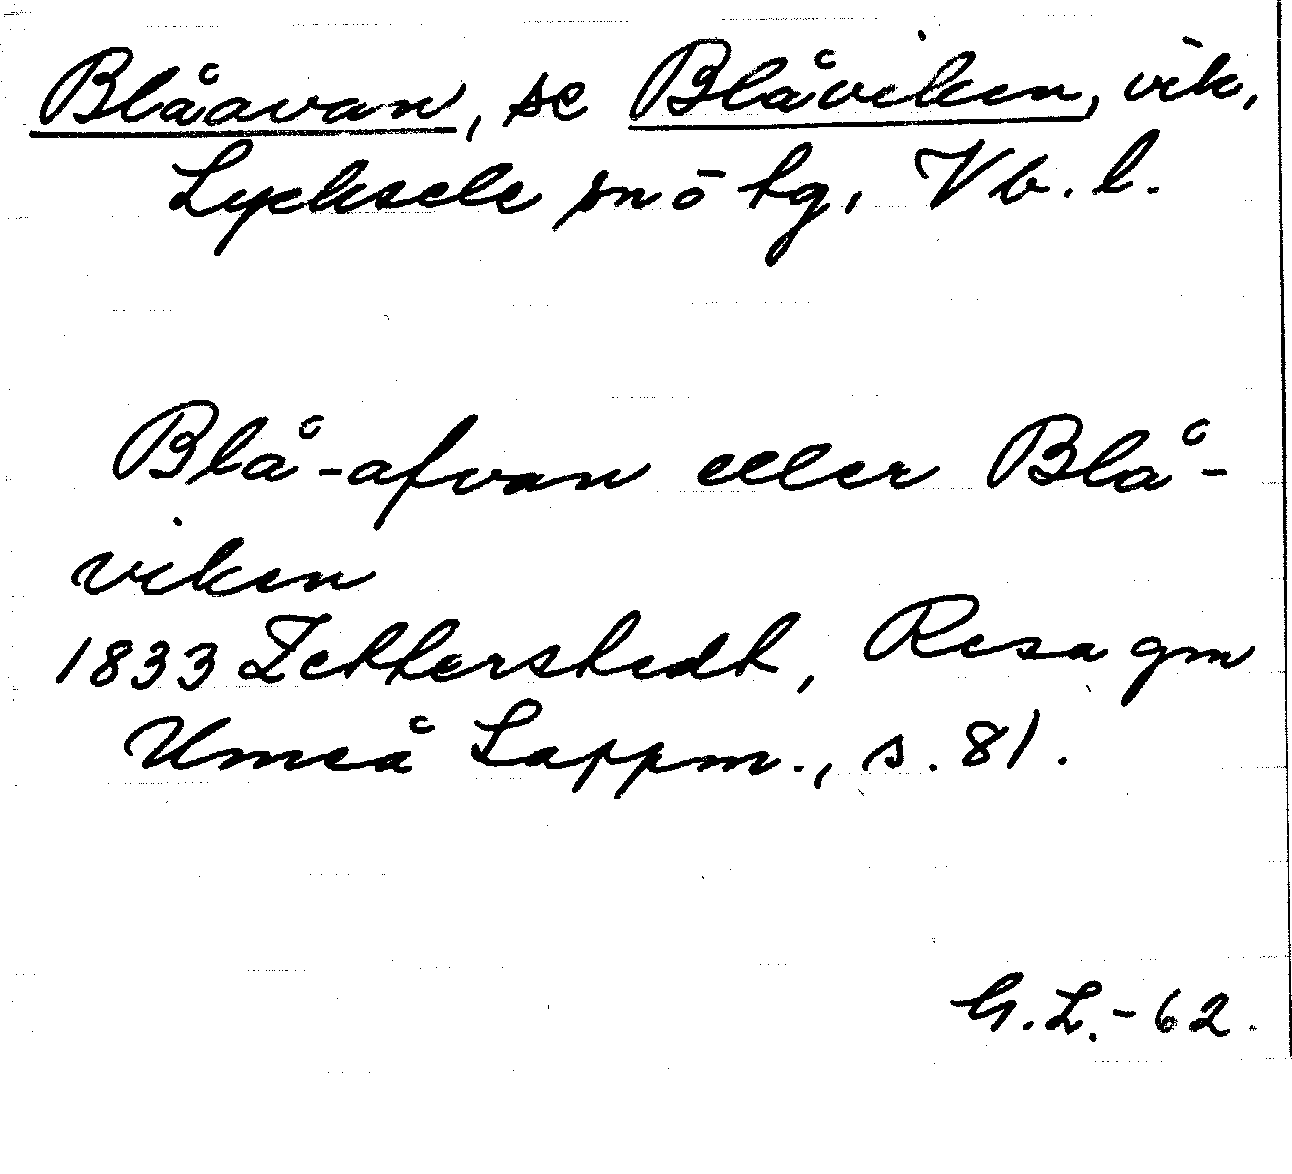 Blåavan, se Blåviken, vik,
Lycksele sn o tg, Vb. l.
Blå-afvan eller Blå-
viken
1833 Zetterstedt, Resa gm
Umeå Lappm., s. 81.
G.L.-62.